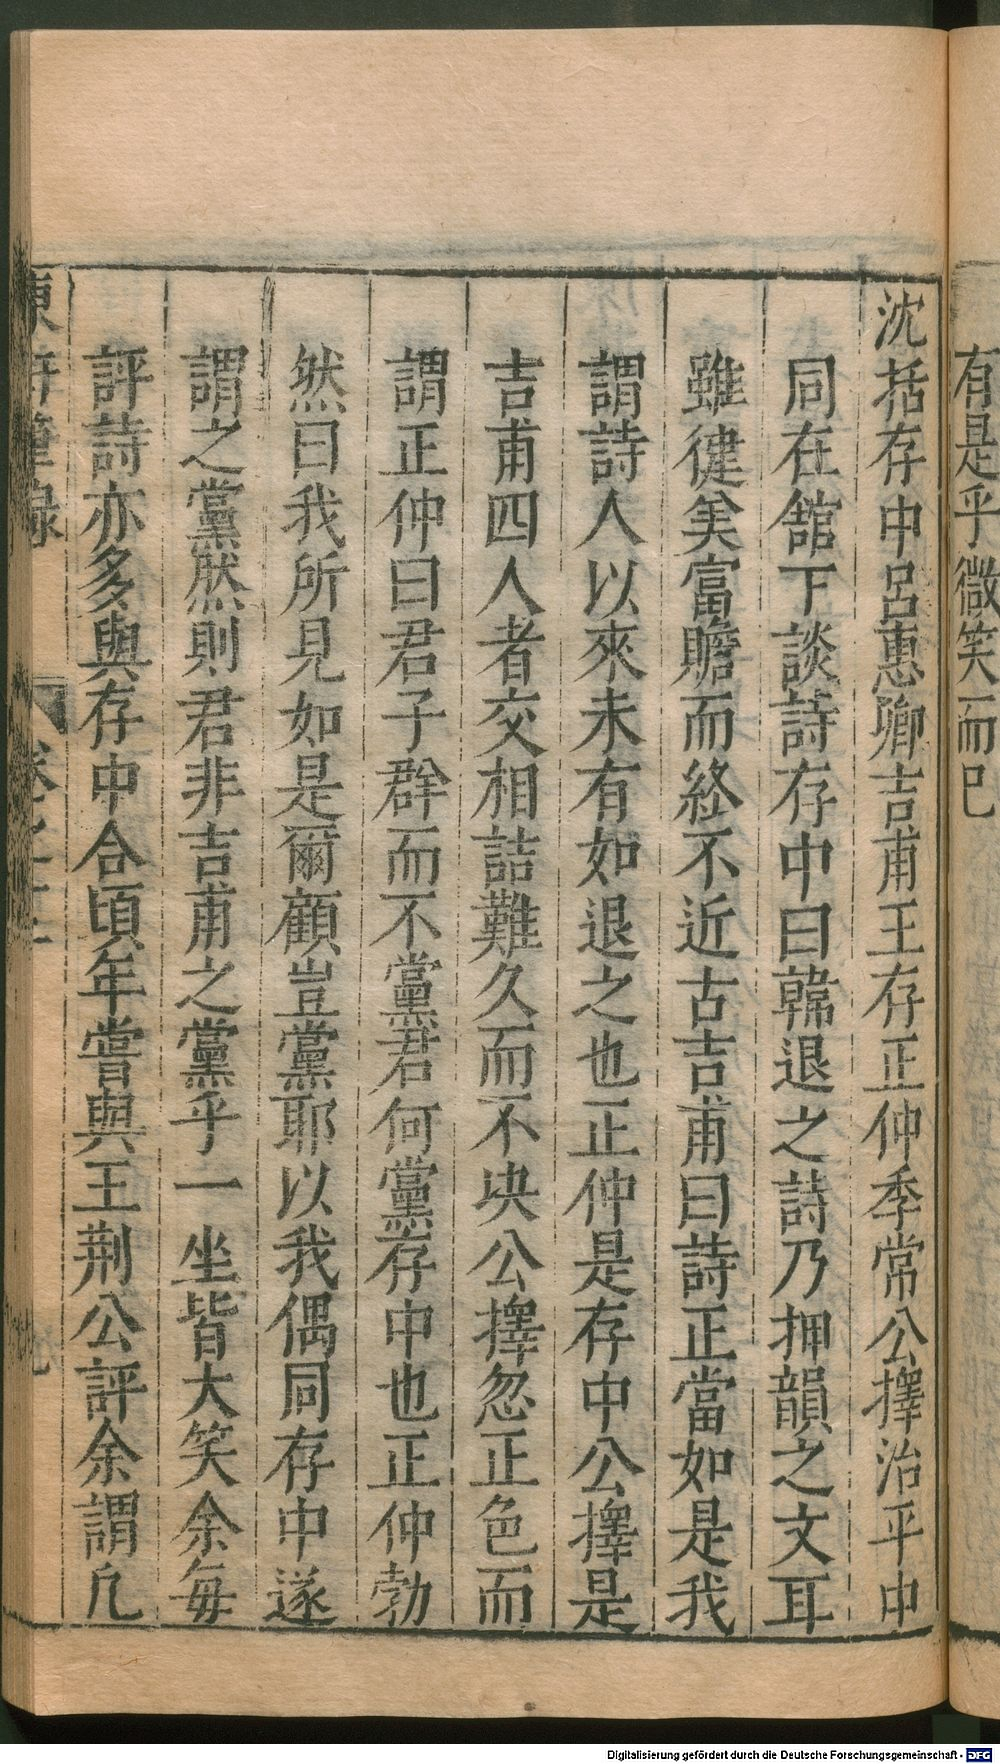 有是乎微笑而已
沈括存中呂惠卿吉甫王存正仲李常公擇治平中
同在舘下談詩存中曰韓退之詩乃押韻之文耳
雖健美富贍而終不近古吉甫曰詩正當如是我
謂詩人以來未有如退之也正仲是存中公擇是
吉甫四人者交相詰難久而不决公擇忽正色而
謂正仲曰君子群而不黨君何黨存中也正仲勃
然曰我所見如是爾顧豈黨耶以我偶同存中遂
謂之黨然則君非吉甫之黨乎一坐皆大笑余每
評詩亦多與存中合頃年嘗與王荆公評余謂凢
東軒筆録 卷之十二
Digitalisierung gefördert durch die Deutsche Forschungsgemeinschaft - DFG